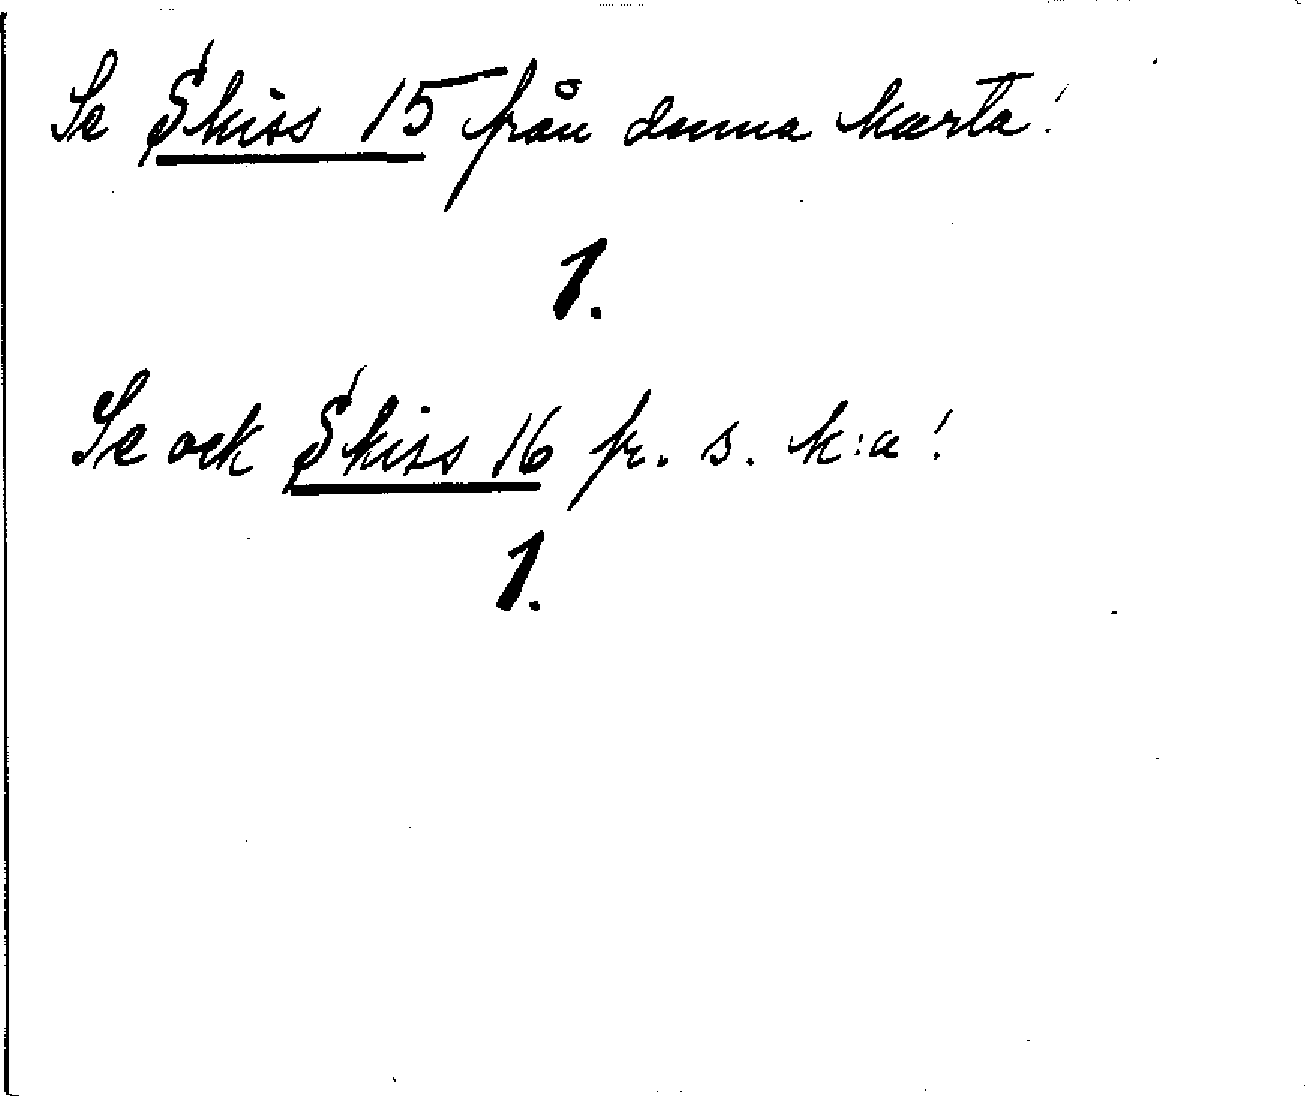 Se Skiss 15 från denna karta!
1.
Se ock Skiss 16 fr. s. k:a!
1.